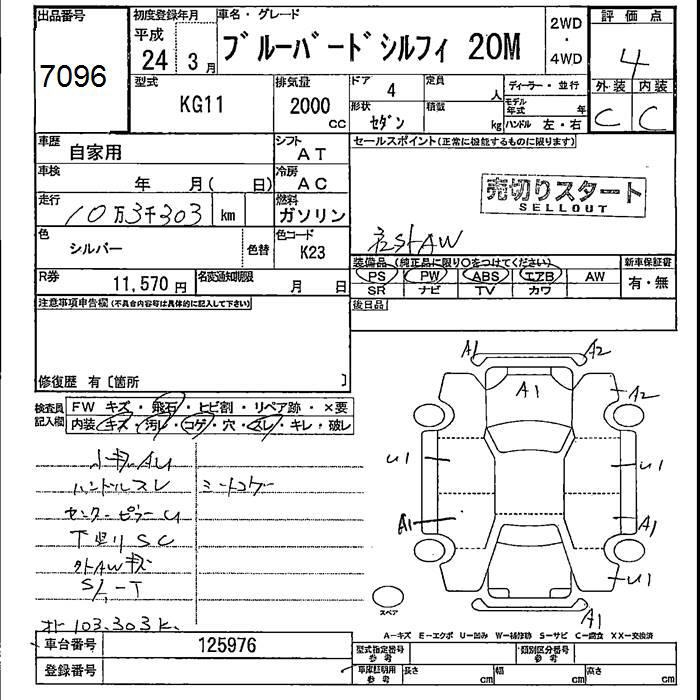 出品番号
7096
初度登録年月
平成
24年 3月
車名・グレード
ブルーバードシルフィ 20M
2WD
・
4WD
評価点
4
外装 内装
C C
型式
KG11
排気量
2000
CC
ドア
4
定員
人
形状
セダン
積載
kg
ディーラー・並行
モデル
年式 年
ハンドル 左・右
車歴
自家用
シフト
AT
セールスポイント(正常に機能するものに限ります)
車検
年 月( 日)
冷房
AC
売切りスタート
SELLOUT
走行
10万3千303 km
燃料
ガソリン
社外AW
色
シルバー
色替
色コード
K23
装備品 (純正品に限り○をつけてください)
PS PW ABS エアB AW
SR ナビ TV カワ
新車保証書
有・無
R券
11,570 円
名変通知期限
月 日
後日品
注意事項申告欄(不具合内容等は具体的に記入して下さい)
修復歴 有〔箇所 〕
検査員
記入欄
FW キズ・飛石・ヒビ割・リペア跡・×要
内装 キズ・汚レ・コゲ・穴・スレ・キレ・破レ
小キズAU
ハンドルスレ シートコゲ
センターピラーU
下廻りSC
外AWキズ
S/-T
オド 103.303K
A1 A2
A1
A2
U1 U1
A1 A1
U1
A1
スペア
A-キズ E-エクボ U-凹み W-補修跡 S-サビ C-腐食 XX-交換済
車台番号
125976
登録番号
型式指定番号
参考
類別区分番号
参考
車庫証明用
参考
長さ cm
幅 cm
高さ cm